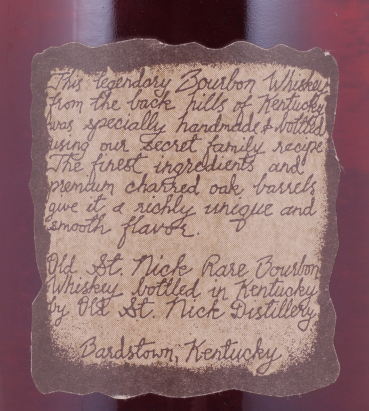 This legendary Bourbon Whiskey
from the back hills of Kentucky
was specially handmade & bottled
using our secret family recipe
The finest ingredients and
premium charred oak barrels
give it a richly unique and
smooth flavor.
Old St. Nick Rare Bourbon
Whiskey bottled in Kentucky
by Old St. Nick Distillery
Bardstown, Kentucky